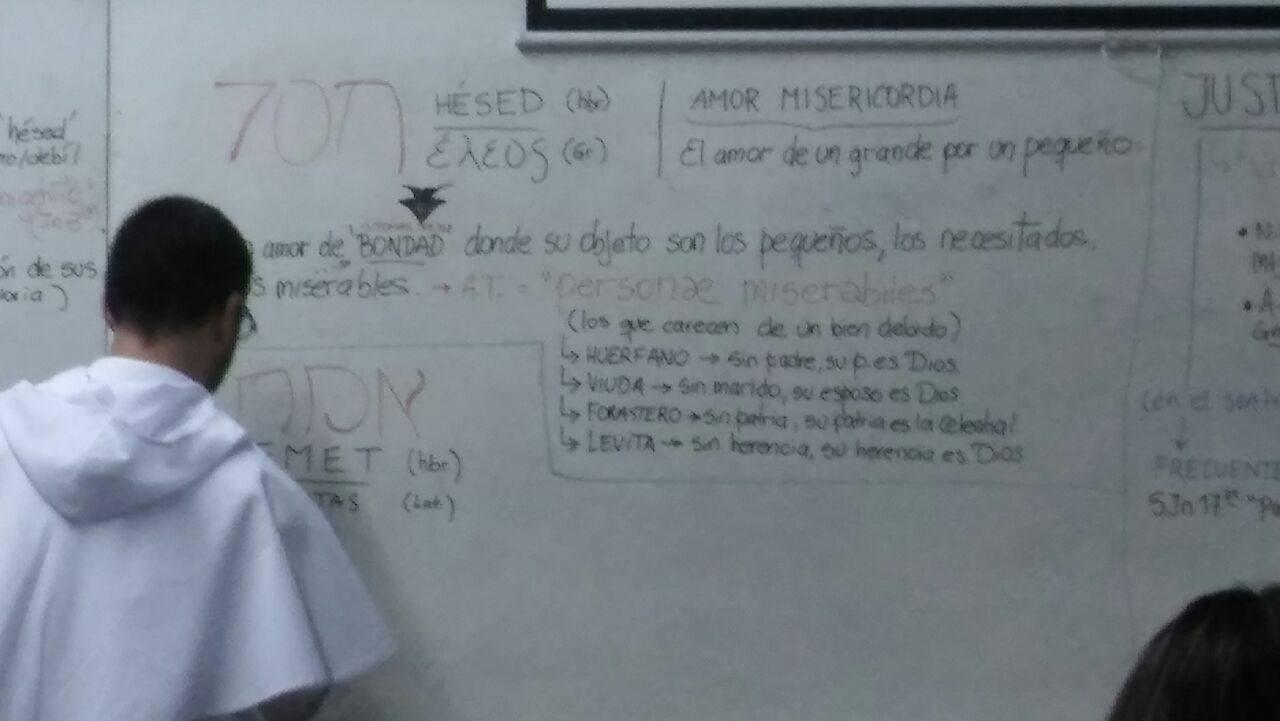 חסד HÉSED (hbr) | AMOR MISERICORDIA
ἐλεος (Gr) | El amor de un grande por un pequeño
amor de "BONDAD" donde su objeto son los pequeños, los necesitados,
s miserables. → A.T. = "personae miserabiles"
(los que carecen de un bien debido)
↳ HUERFANO → sin padre, su p. es Dios
↳ VIUDA → sin marido, su esposo es Dios
↳ FORASTERO → sin patria, su patria es la Celestial
↳ LEVITA → sin herencia, su herencia es Dios
EMET (hbr)
TAS (Lat)
'hésed'
mo/debil
ón de sus
oria)
JUST
(en el sent
↓
FRECUENTE
SJn 17